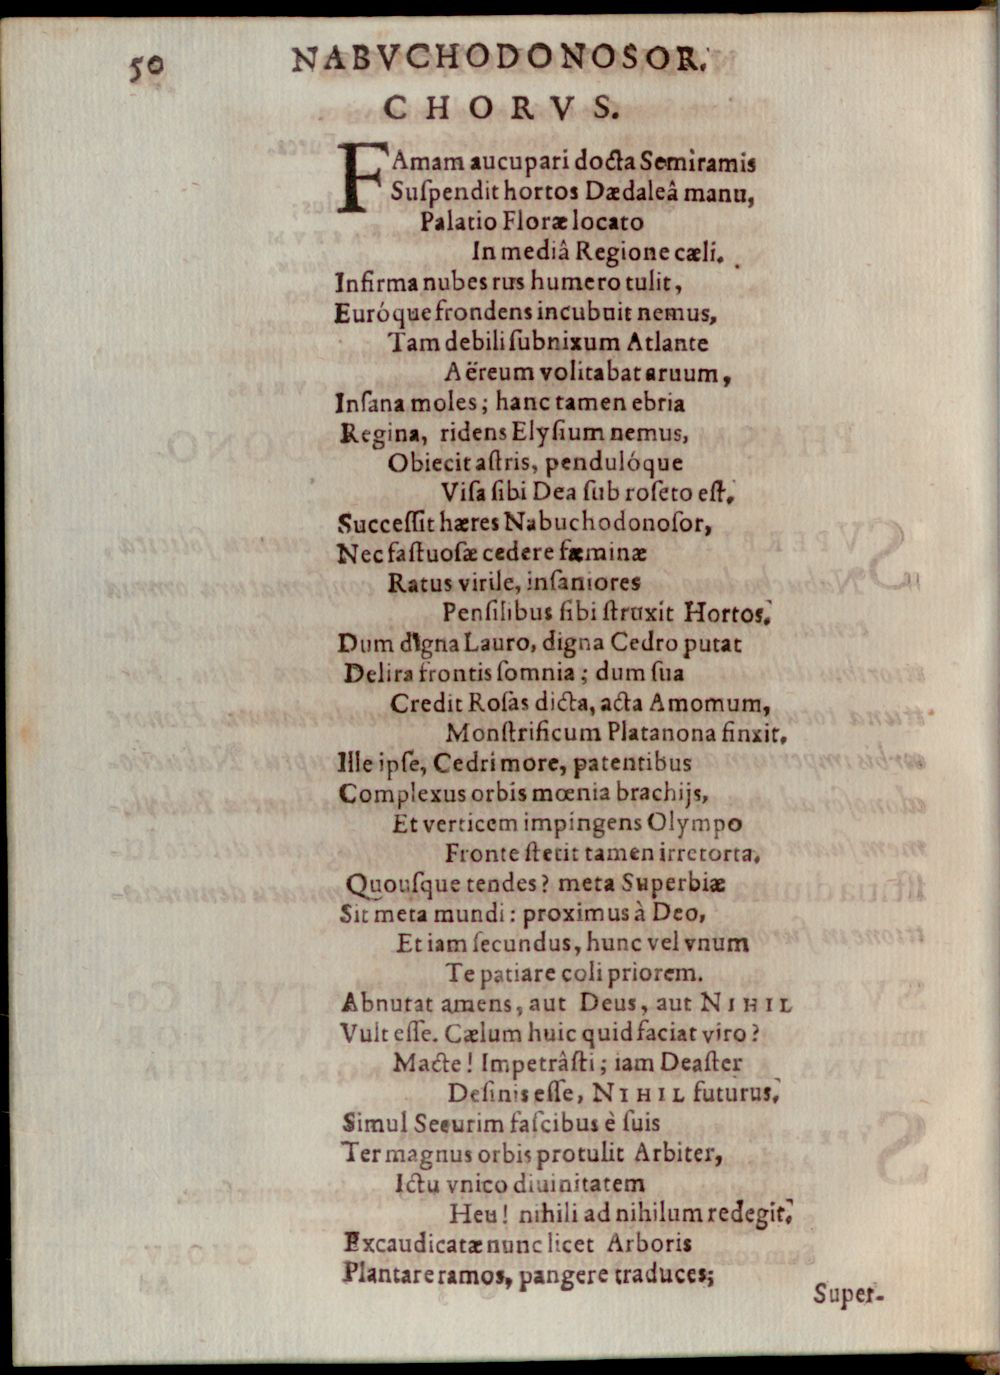 50 NABVCHODONOSOR.
CHORVS.
FAmam aucupari docta Semìramis
Suſpendit hortos Dædaleâ manu,
Palatio Floræ locato
In mediâ Regione cæli.
Infirma nubes rus humero tulit,
Euróque frondens incubuit nemus,
Tam debili ſubnixum Atlante
Aëreum volitabat aruum,
Inſana moles; hanc tamen ebria
Regina, ridens Elyſium nemus,
Obiecit aſtris, pendulóque
Viſa ſibi Dea ſub roſeto eſt.
Succeſſit hæres Nabuchodonoſor,
Nec faſtuoſæ cedere fæminæ
Ratus virile, inſaniores
Penſilibus ſibi ſtruxit Hortos.
Dum digna Lauro, digna Cedro putat
Delira frontis ſomnia; dum ſua
Credit Roſas dicta, acta Amomum,
Monſtrificum Platanona finxit.
Ille ipſe, Cedri more, patentibus
Complexus orbis mœnia brachijs,
Et verticem impingens Olympo
Fronte ſtetit tamen irretorta.
Quouſque tendes? meta Superbiæ
Sit meta mundi: proximus à Deo,
Et iam ſecundus, hunc vel vnum
Te patiare coli priorem.
Abnutat amens, aut Deus, aut NIHIL
Vult eſſe. Cælum huic quid faciat viro?
Macte! Impetrâſti; iam Deaſter
Deſinis eſſe, NIHIL futurus.
Simul Securim faſcibus è ſuis
Ter magnus orbis protulit Arbiter,
Ictu vnico diuinitatem
Heu! nihili ad nihilum redegit.
Excaudicatæ nunc licet Arboris
Plantare ramos, pangere traduces;
Super-